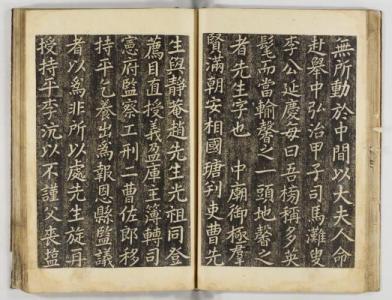 無所動於中間以大夫人命
赴舉中弘治甲子司馬灘叟
李公延慶每曰吾榜稱多英
髦而當輸馨之一頭地馨之
者先生字也 中廟御極羣
賢滿朝安相國瑭判吏曹先
生與靜菴趙先生光祖同登
薦目直授義盈庫主簿轉司
憲府監察工刑二曹佐郎移
持平乞養出爲報恩縣監議
者以爲非所以處先生旋再
授持平李沆以不謹父喪塩